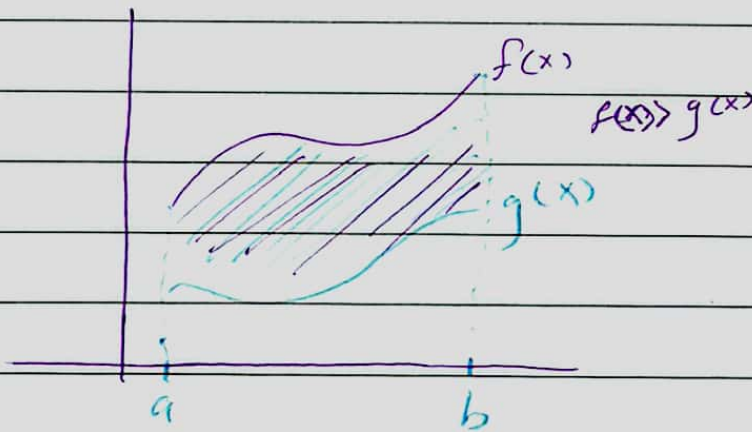 f(x)
f(x)> g(x)
g(x)
a
b